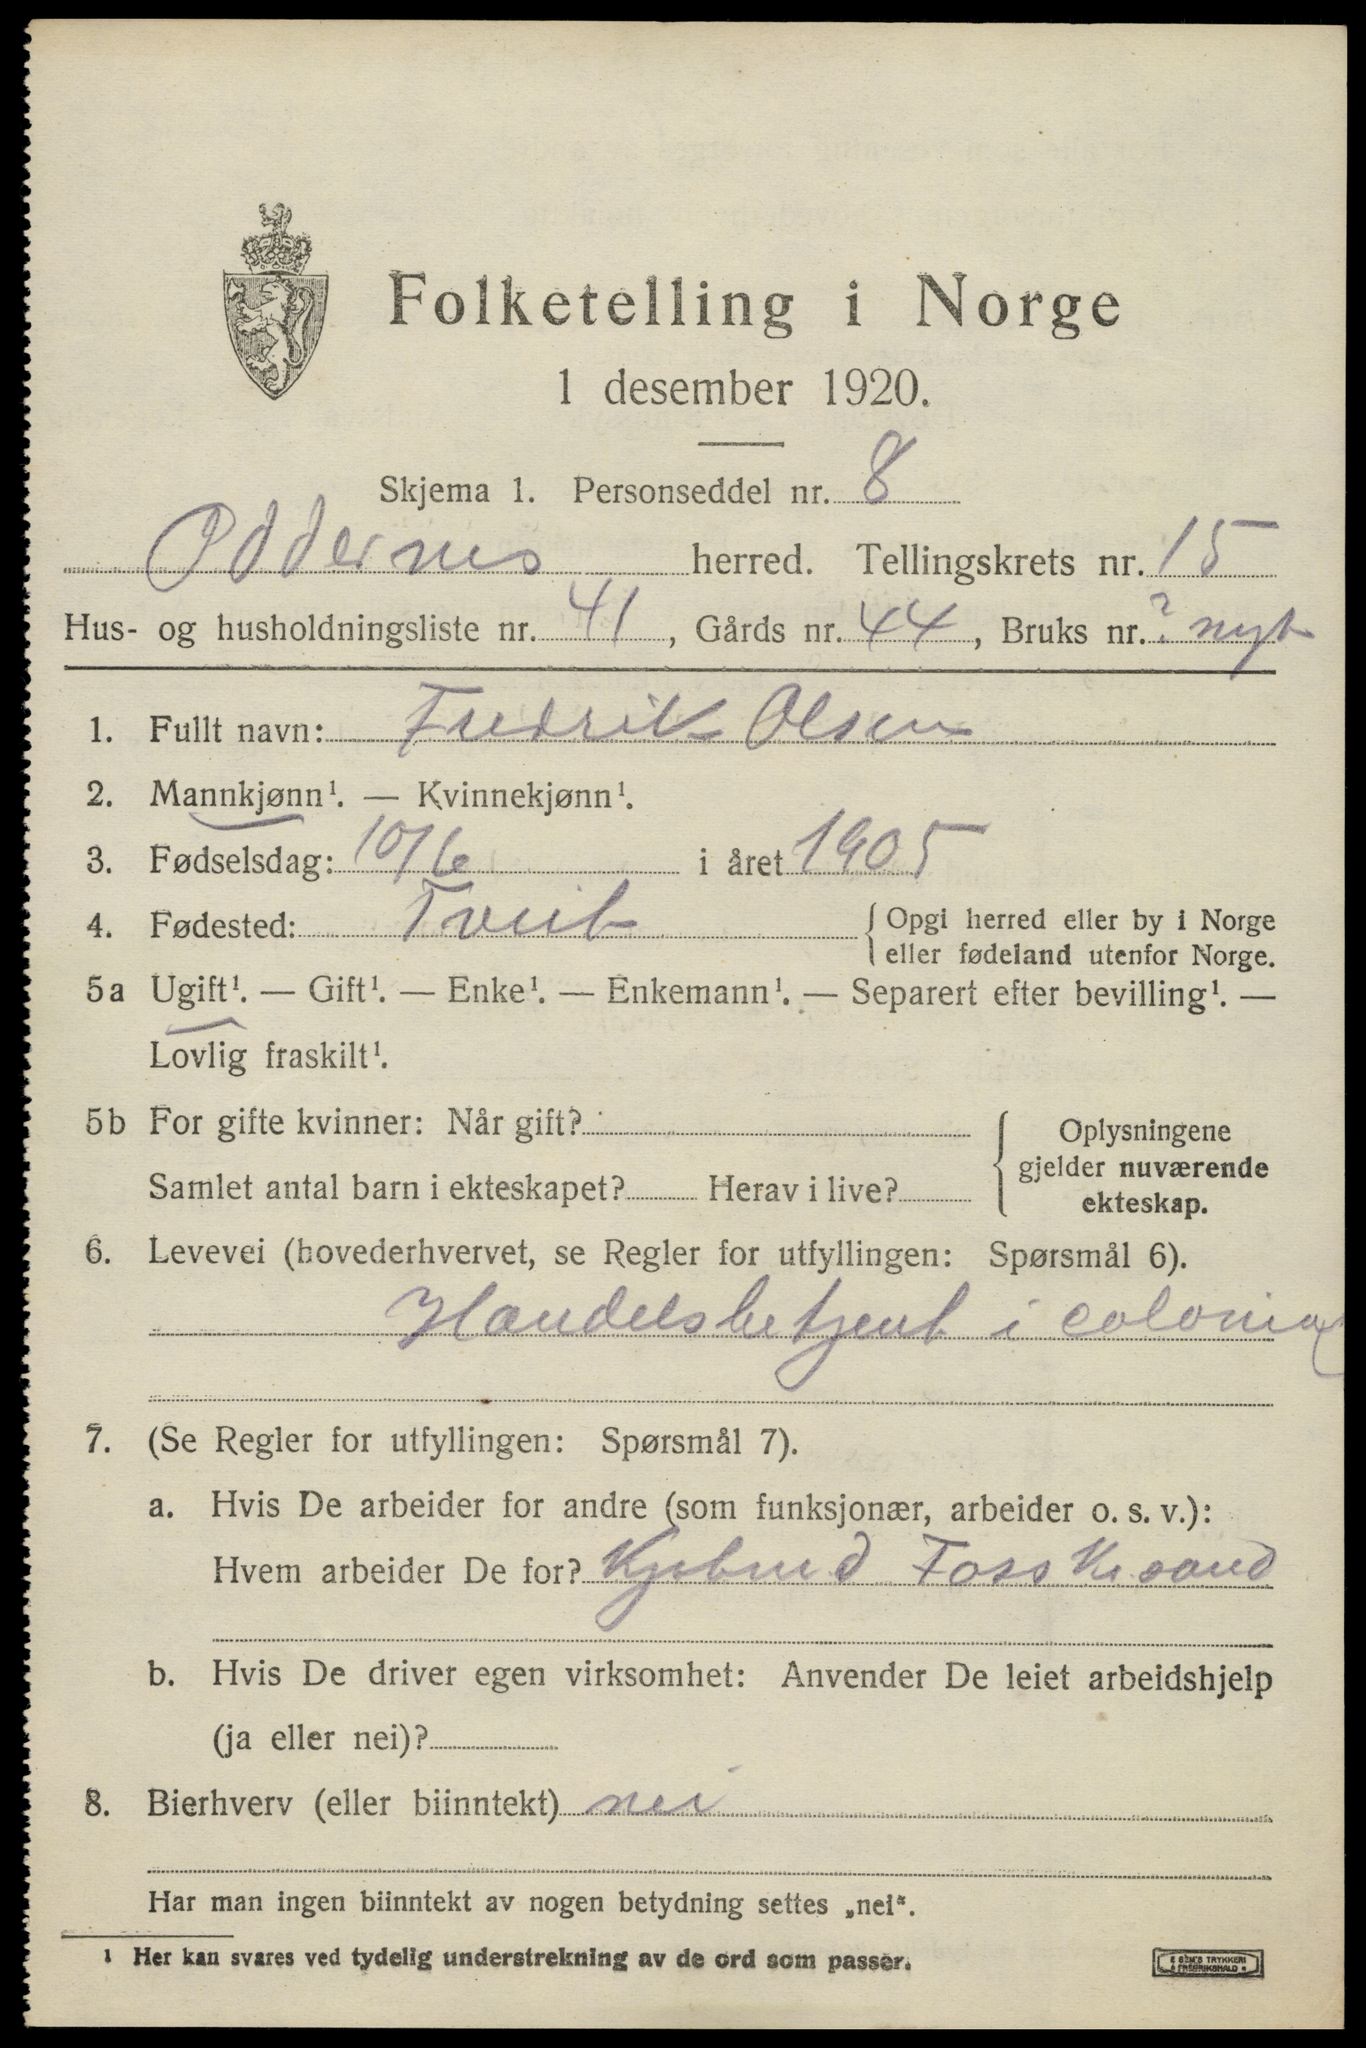 Folketelling i Norge
1 desember 1920.
Skjema 1. Personseddel nr. 8
Oddernes herred. Tellingskrets nr. 15
Hus- og husholdningsliste nr. 41, Gårds nr. 44, Bruks nr. ? nyt
1. Fullt navn: Fredrik Olsen
2. Mannkjønn¹. — Kvinnekjønn¹.
3. Fødselsdag: 10/6 i året 1905
4. Fødested: Tveit { Opgi herred eller by i Norge
eller fødeland utenfor Norge.
5a Ugift¹. — Gift¹. — Enke¹. — Enkemann¹. — Separert efter bevilling¹. —
Lovlig fraskilt¹.
5b For gifte kvinner: Når gift?
Samlet antal barn i ekteskapet? Herav i live?
Oplysningene
gjelder nuværende
ekteskap.
6. Levevei (hovederhvervet, se Regler for utfyllingen: Spørsmål 6).
Handelsbetjent i colonial
7. (Se Regler for utfyllingen: Spørsmål 7).
a. Hvis De arbeider for andre (som funksjonær, arbeider o. s. v.):
Hvem arbeider De for? Kjøbmd Foss Kr sand
b. Hvis De driver egen virksomhet: Anvender De leiet arbeidshjelp
(ja eller nei)?
8. Bierhverv (eller biinntekt) nei
Har man ingen biinntekt av nogen betydning settes „nei“.
¹ Her kan svares ved tydelig understrekning av de ord som passer.
SEM'S TRYKKERI
FREDRIKSHALD